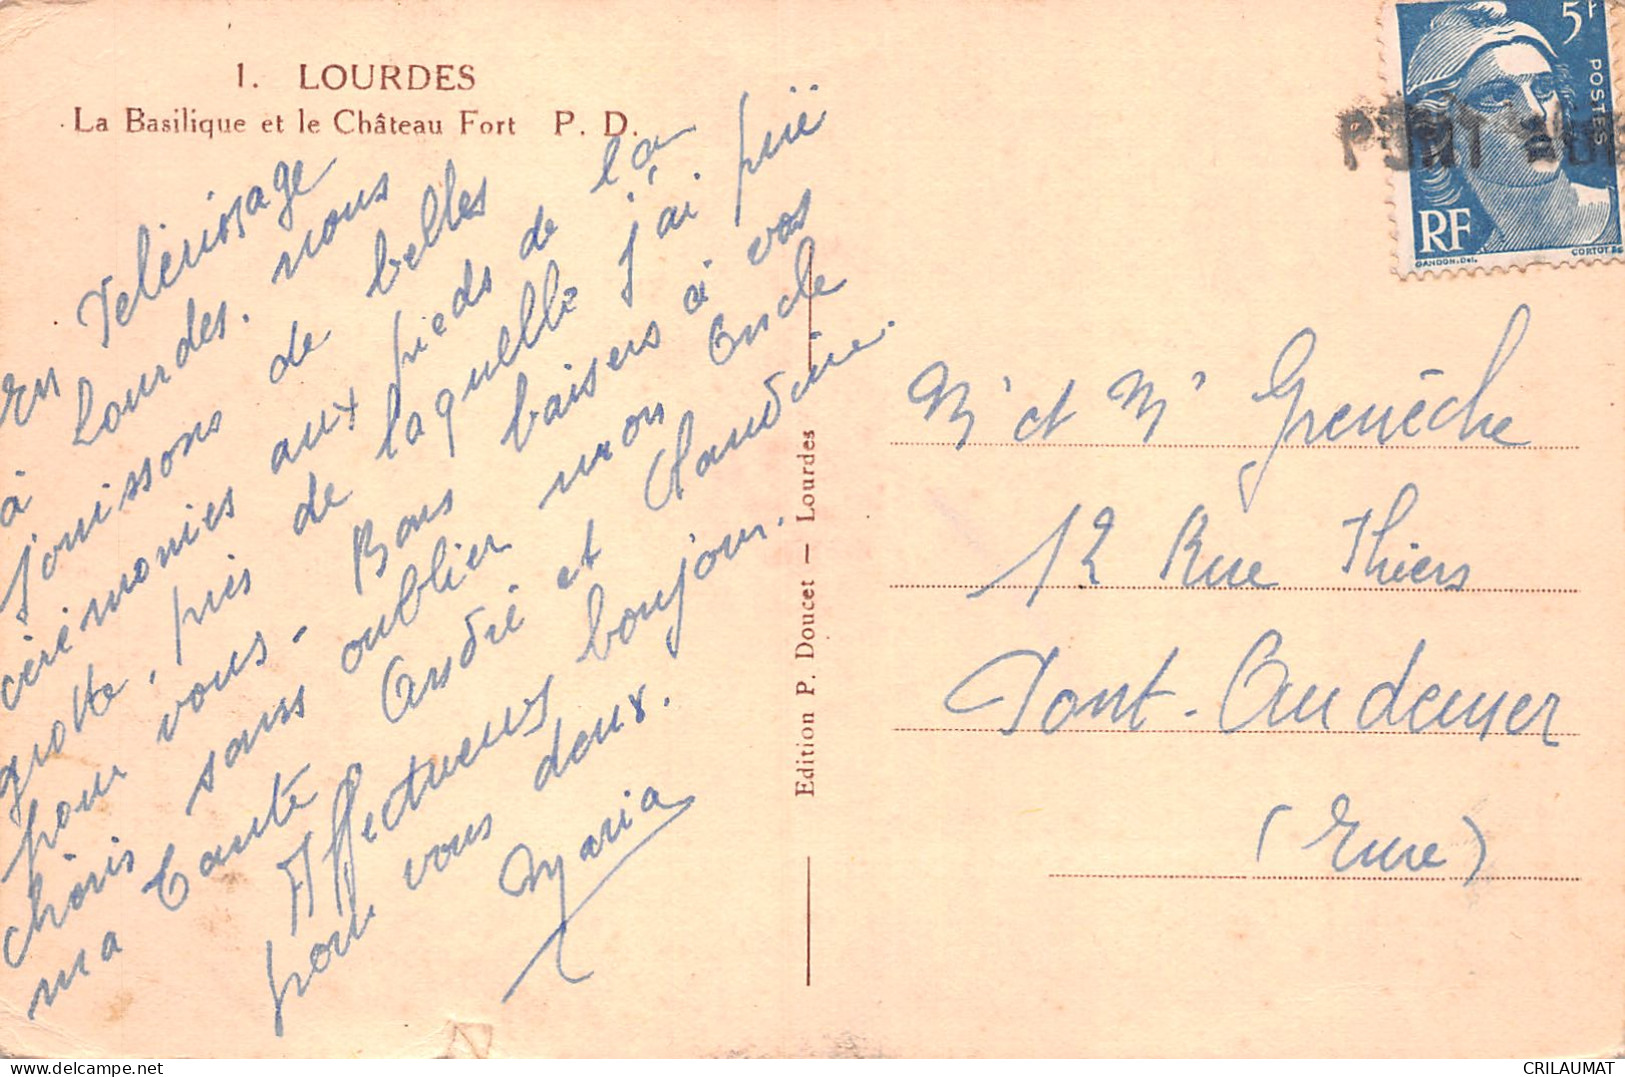 1. LOURDES
La Basilique et le Château Fort P. D.
En Pelérinage
à Lourdes. nous
jouissons de belles
cérémonies aux pieds de la
grotte, près de laquelle j'ai prié
pour vous. Bons baisers à vos
chéris sans oublier mon Oncle
ma Tante André et Claudine.
Affectueux bonjour
pour vous deux.
Maria
Edition P. Doucet — Lourdes
5F
POSTES
RF
GANDON.Del.
CORTOT
PONT AU
Mr et Me Grenêche
12 Rue Thiers
Pont-Audemer
(Eure)
CRILAUMAT